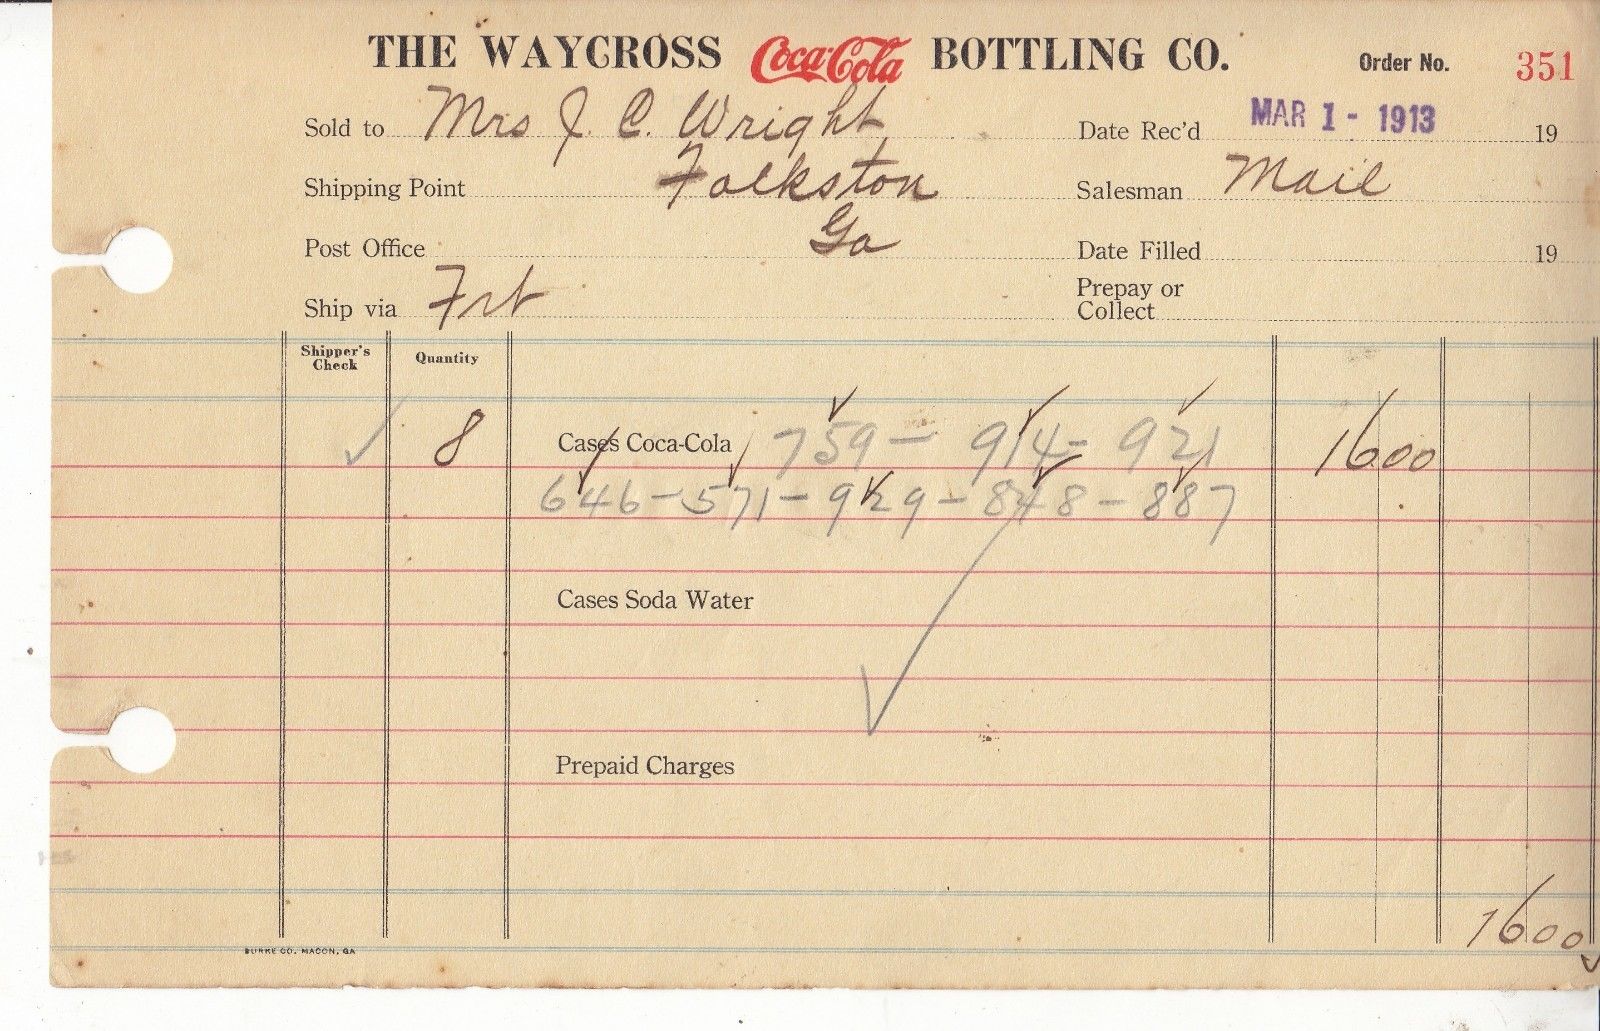 THE WAYCROSS Coca-Cola BOTTLING CO. Order No. 351
Sold to Mrs J. C. Wright Date Rec'd MAR 1 - 1913 19
Shipping Point Folkston Salesman Mail
Post Office Ga Date Filled 19
Ship via Frt Prepay or Collect
Shipper's Check Quantity
8 Cases Coca-Cola 759 - 914 - 921 1600
646 - 571 - 929 - 848 - 887
Cases Soda Water
Prepaid Charges
1600
BURKE CO. MACON, GA